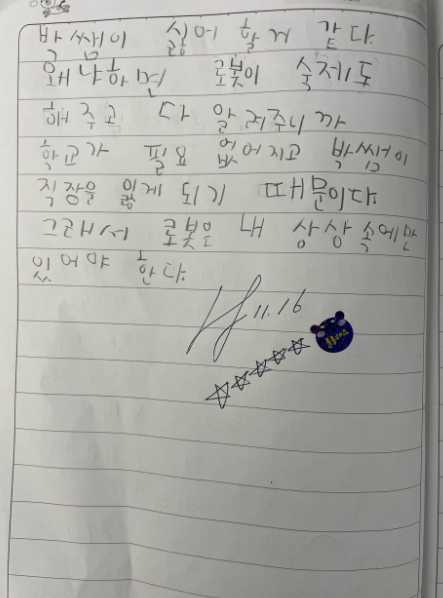 박쌤이 싫어 할 거 같다.
왜냐하면 로봇이 숙제도
해주고 다 알려주니까
학교가 필요 없어지고 박쌤이
직장을 잃게 되기 때문이다.
그래서 로봇은 내 상상 속에만
있어야 한다.
11.16